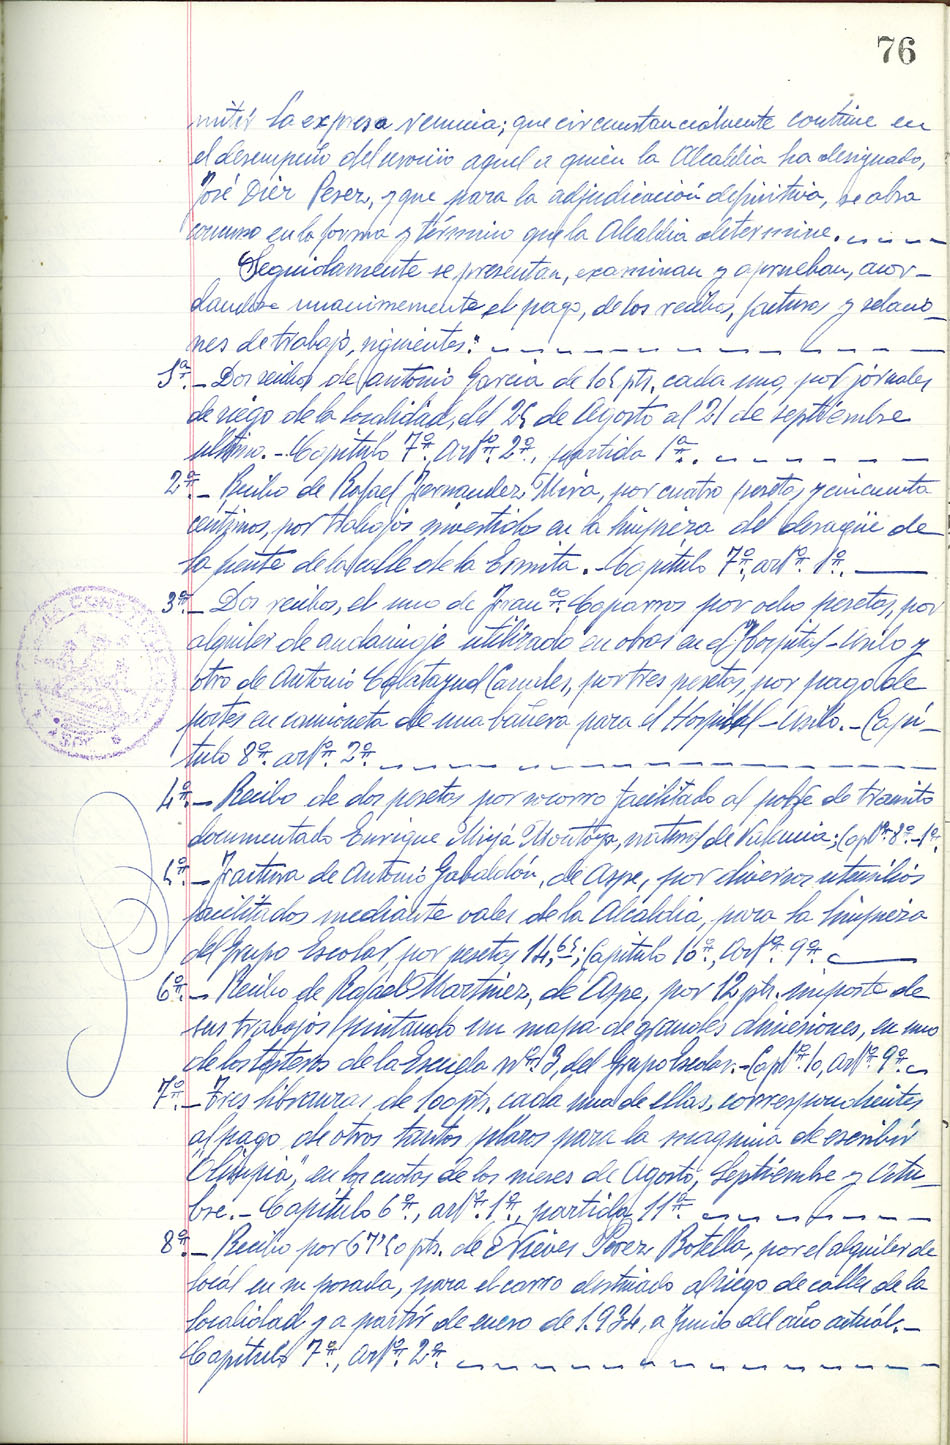 76
mitir la expresa renuncia; que circunstancialmente continue en
el desempeño del servicio aquel a quien la Alcaldia ha designado,
José Dier Perez, y que para la adjudicación definitiva, se abra
concurso en la forma y término que la Alcaldia determine.
Seguidamente se presentan, examinan y aprueban, acor-
dandose unanimemente el pago, de los recibos, facturas y relacio-
nes de trabajo, siguientes:
1º.- Dos recibos de Antonio Garcia de 105 pts. cada uno, por jornales
de riego de la localidad, del 25 de Agosto al 21 de septiembre
último.- Capitulo 7º. Artº. 2º, partida 1ª.
2º.- Recibo de Rafael Fernandez Mira, por cuatro pesetas y cincuenta
centimos, por trabajos invertidos en la limpieza del desagüe de
la fuente de la calle de la Ermita.- Capitulo 7º. artº. 1º.
3º.- Dos recibos, el uno de Franco. Caparros por ocho pesetas, por
alquiler de andamiaje utilizado en obras en el Hospital-Asilo y
otro de Antonio Calatayud Canales, por tres pesetas, por pago de
portes en camioneta de una bañera para el Hospital-Asilo.- Capí-
tulo 8º. artº. 2º.
4º.- Recibo de dos pesetas por socorro facilitado al pobre de transito
documentado Enrique Moyá Montoya, natural de Valencia; Captº. 8º-1º.
5º.- Factura de Antonio Gabaldón, de Aspe, por diversos utensilios
facilitados mediante vales de la Alcaldia, para la limpieza
del Grupo Escolar, por pesetas 14,65; Capitulo 10º, Artº. 9º.
6º.- Recibo de Rafael Martinez, de Aspe, por 12 pts. importe de
sus trabajos pintando un mapa de grandes dimensiones, en uno
de los testeros de la Escuela nº. 3, del Grupo Escolar.- Captº. 10, Artº. 9º.
7º.- Tres libranzas de 100 pts. cada una de ellas, correspondientes
al pago de otros tantos plazos para la maquina de escribir
"Olimpia", en las cuotas de los meses de Agosto, Septiembre y Octu-
bre.- Capitulo 6º., artº. 1º., partida 11º.
8º.- Recibo por 67'50 pts. de Nieves Perez Botella, por el alquiler de
local en su posada, para el carro destinado al riego de calles de la
localidad y a partir de enero de 1.934, a Junio del año actual.-
Capitulo 7º, Artº. 2º.